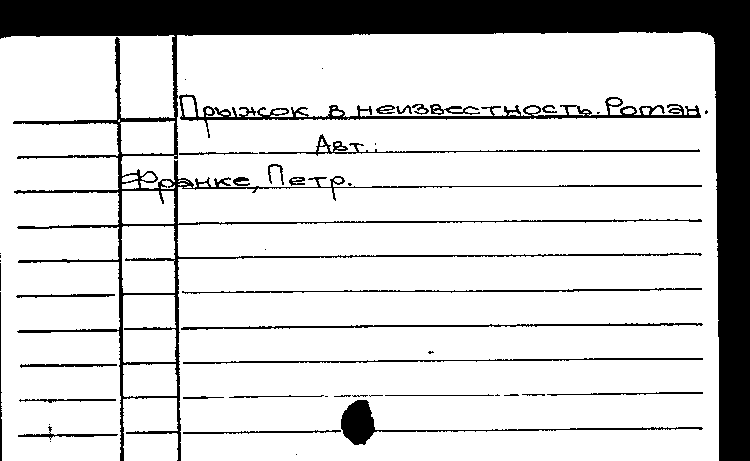 Прыжок в неизвестность. Роман.
Авт.:
Франке, Петр.